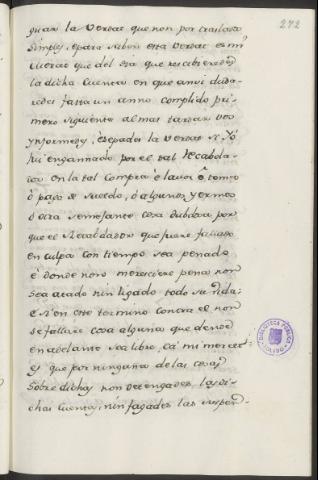 272
guar la Verdat que non por traslado
simple, è para saber esta verdat es mi
merced que del dia que rescibieredes
la dicha Cuenta en que ansi duda-
redes fasta un anno complido pri-
mero siguiente al mas tardar vos
ynformedes, è sepades la verdat si Yo
fui engannado por el tal Recabda-
dor en la tal compra è lavor ò tomo
ò pago de sueldo, ò algunos yermos
ò otra semejante cosa dubdosa por
que el Recabdador que fuere fallado
en culpa con tiempo sea penado
è donde non meresciere pena non
sea atado nin ligado todo su vida
è si en este termino contra el non
se fallare cosa alguna que dende
en adelante sea libre, ca mi merced
es que por ninguna de las cosas
sobre dichas non detengades las di-
chas cuentas, nin fagades las suspen-
BIBLIOTECA PUBLICA
TOLEDO